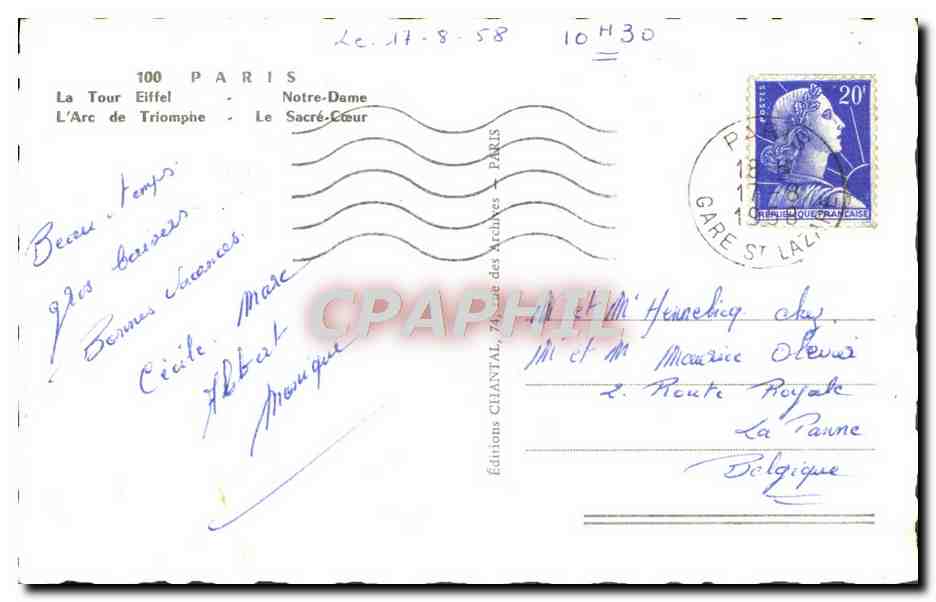 Le. 17-8-58 10H30
100 PARIS
La Tour Eiffel - Notre-Dame
L'Arc de Triomphe - Le Sacré-Cœur
Beau temps
gros baisers
Bonnes vacances.
Cécile. Marc
Monique
Éditions CHANTAL, 74, rue des Archives - PARIS
CPAPHIL
POSTES
20F
RÉPUBLIQUE FRANÇAISE
18 H
17-8
1958
GARE ST LAZARE
M et Me Hennebicq chez
M et M Maurice
2. Route Royale
La Panne
Belgique